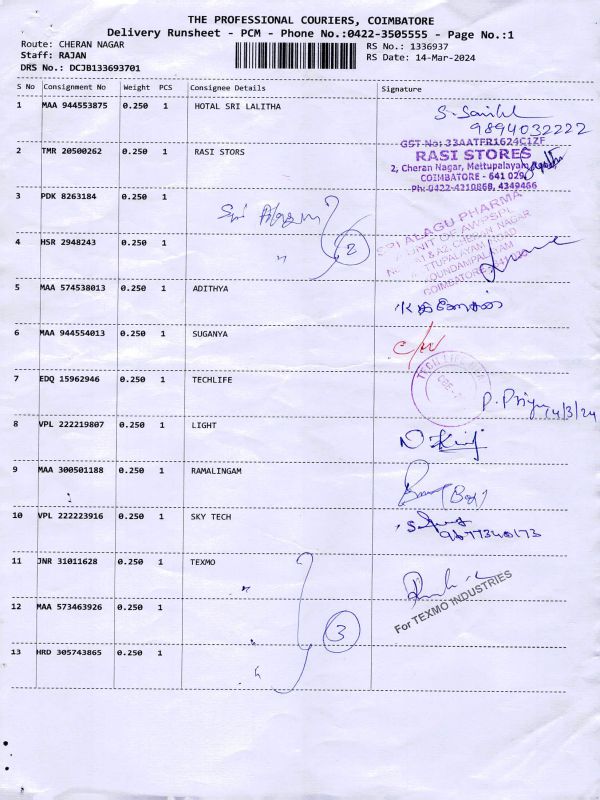 THE PROFESSIONAL COURIERS, COIMBATORE
Delivery Runsheet - PCM - Phone No.:0422-3505555 - Page No.:1
Route: CHERAN NAGAR
RS No.: 1336937
Staff: RAJAN
RS Date: 14-Mar-2024
DRS No.: DCJB133693701
S No Consignment No Weight PCS Consignee Details Signature
1 MAA 944553875 0.250 1 HOTAL SRI LALITHA
9894032222
GST No: 33AATFR1624C1ZF
2 TMR 20500262 0.250 1 RASI STORS
RASI STORES
2, Cheran Nagar, Mettupalayam
COIMBATORE - 641 029
Ph: 0422-4210868, 4349466
3 PDK 8263184 0.250 1
Sri Alagu
SRI ALAGU PHARMA
4 HSR 2948243 0.250 1 " 2
5 MAA 574538013 0.250 1 ADITHYA
6 MAA 944554013 0.250 1 SUGANYA
7 EDQ 15962946 0.250 1 TECHLIFE
P. Priya 14/3/24
8 VPL 222219807 0.250 1 LIGHT
9 MAA 300501188 0.250 1 RAMALINGAM
10 VPL 222223916 0.250 1 SKY TECH
9677340173
11 JNR 31011628 0.250 1 TEXMO
"
For TEXMO INDUSTRIES
12 MAA 573463926 0.250 1
3
13 HRD 305743865 0.250 1